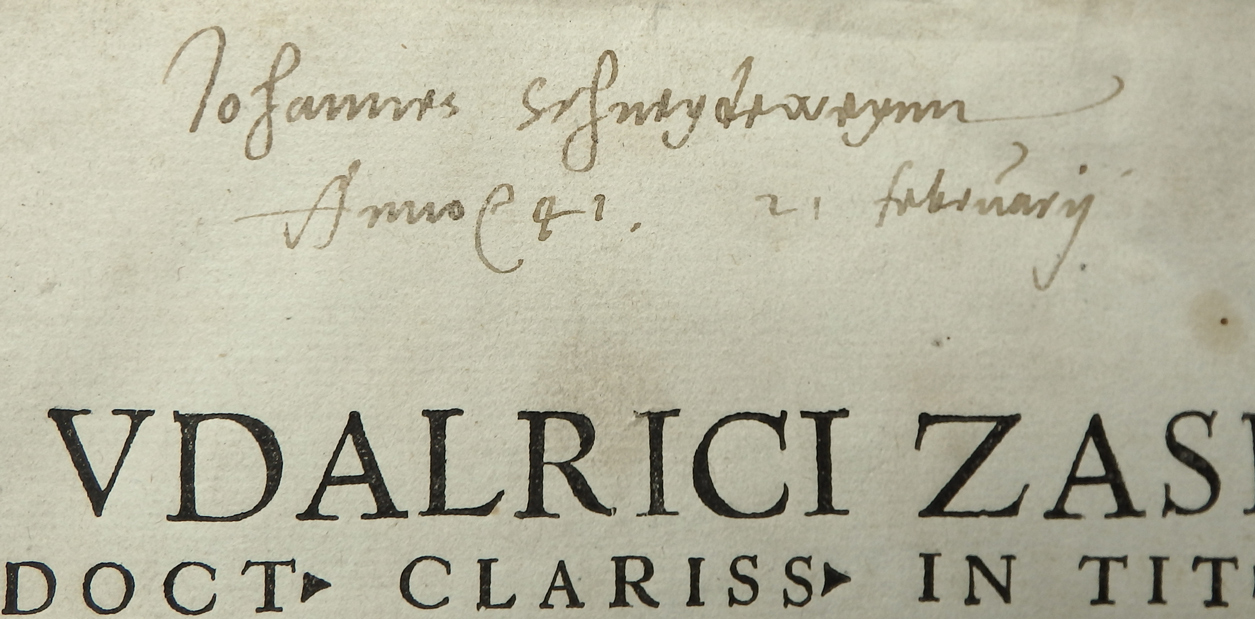 Johannes Schneydeweynn
Anno 41. 21 februarij
VDALRICI ZASI
DOCT CLARISS IN TIT